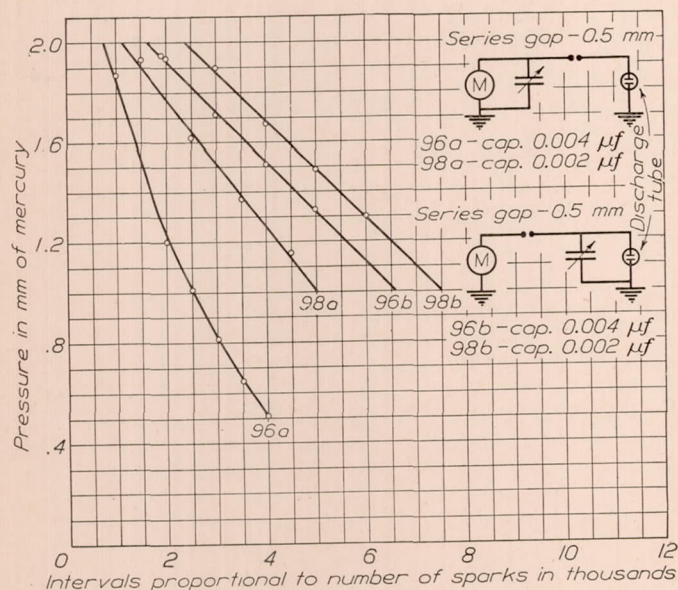 2.0
1.6
1.2
.8
.4
Pressure in mm of mercury
Series gap-0.5 mm
M
96a-cap. 0.004 μf
98a-cap. 0.002 μf
Discharge
tube
Series gap-0.5 mm
M
96b-cap. 0.004 μf
98b-cap. 0.002 μf
98a
96b
98b
96a
0 2 4 6 8 10 12
Intervals proportional to number of sparks in thousands